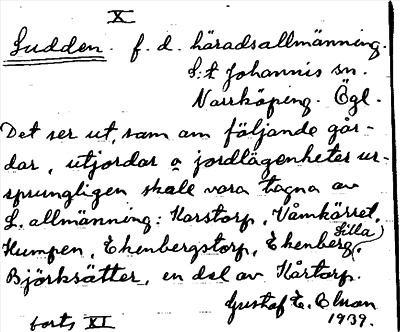 X
Ludden. f. d. häradsallmänning.
S:t Johannis sn.
Norrköping. Ögl.
Det ser ut, som om följande går-
dar, utjordar o jordlägenheter ur-
sprungligen skall vara tagna av
L. allmänning: Korstorp, Våmkärret,
Lilla
Kumpen, Ekenbergstorp, Ekenberg,
Björksätter, en del av Kårtorp.
Gustaf E.
1939.
forts XI